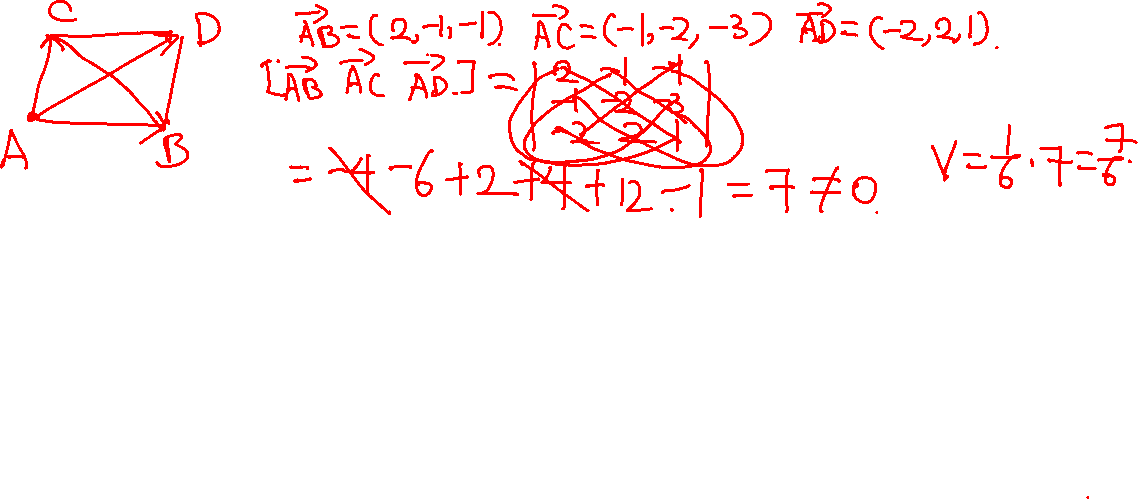 C D A B
$\vec{AB}=(2,-1,-1)$ $\vec{AC}=(-1,-2,-3)$ $\vec{AD}=(-2,2,1)$.
$[\vec{AB}\ \vec{AC}\ \vec{AD}]=\begin{vmatrix}2&-1&-1\\-1&-2&-3\\-2&2&1\end{vmatrix}$
$=\cancel{-4}-6+2\cancel{+4}+12-1=7\neq 0.$ $V=\frac{1}{6}\cdot 7=\frac{7}{6}.$